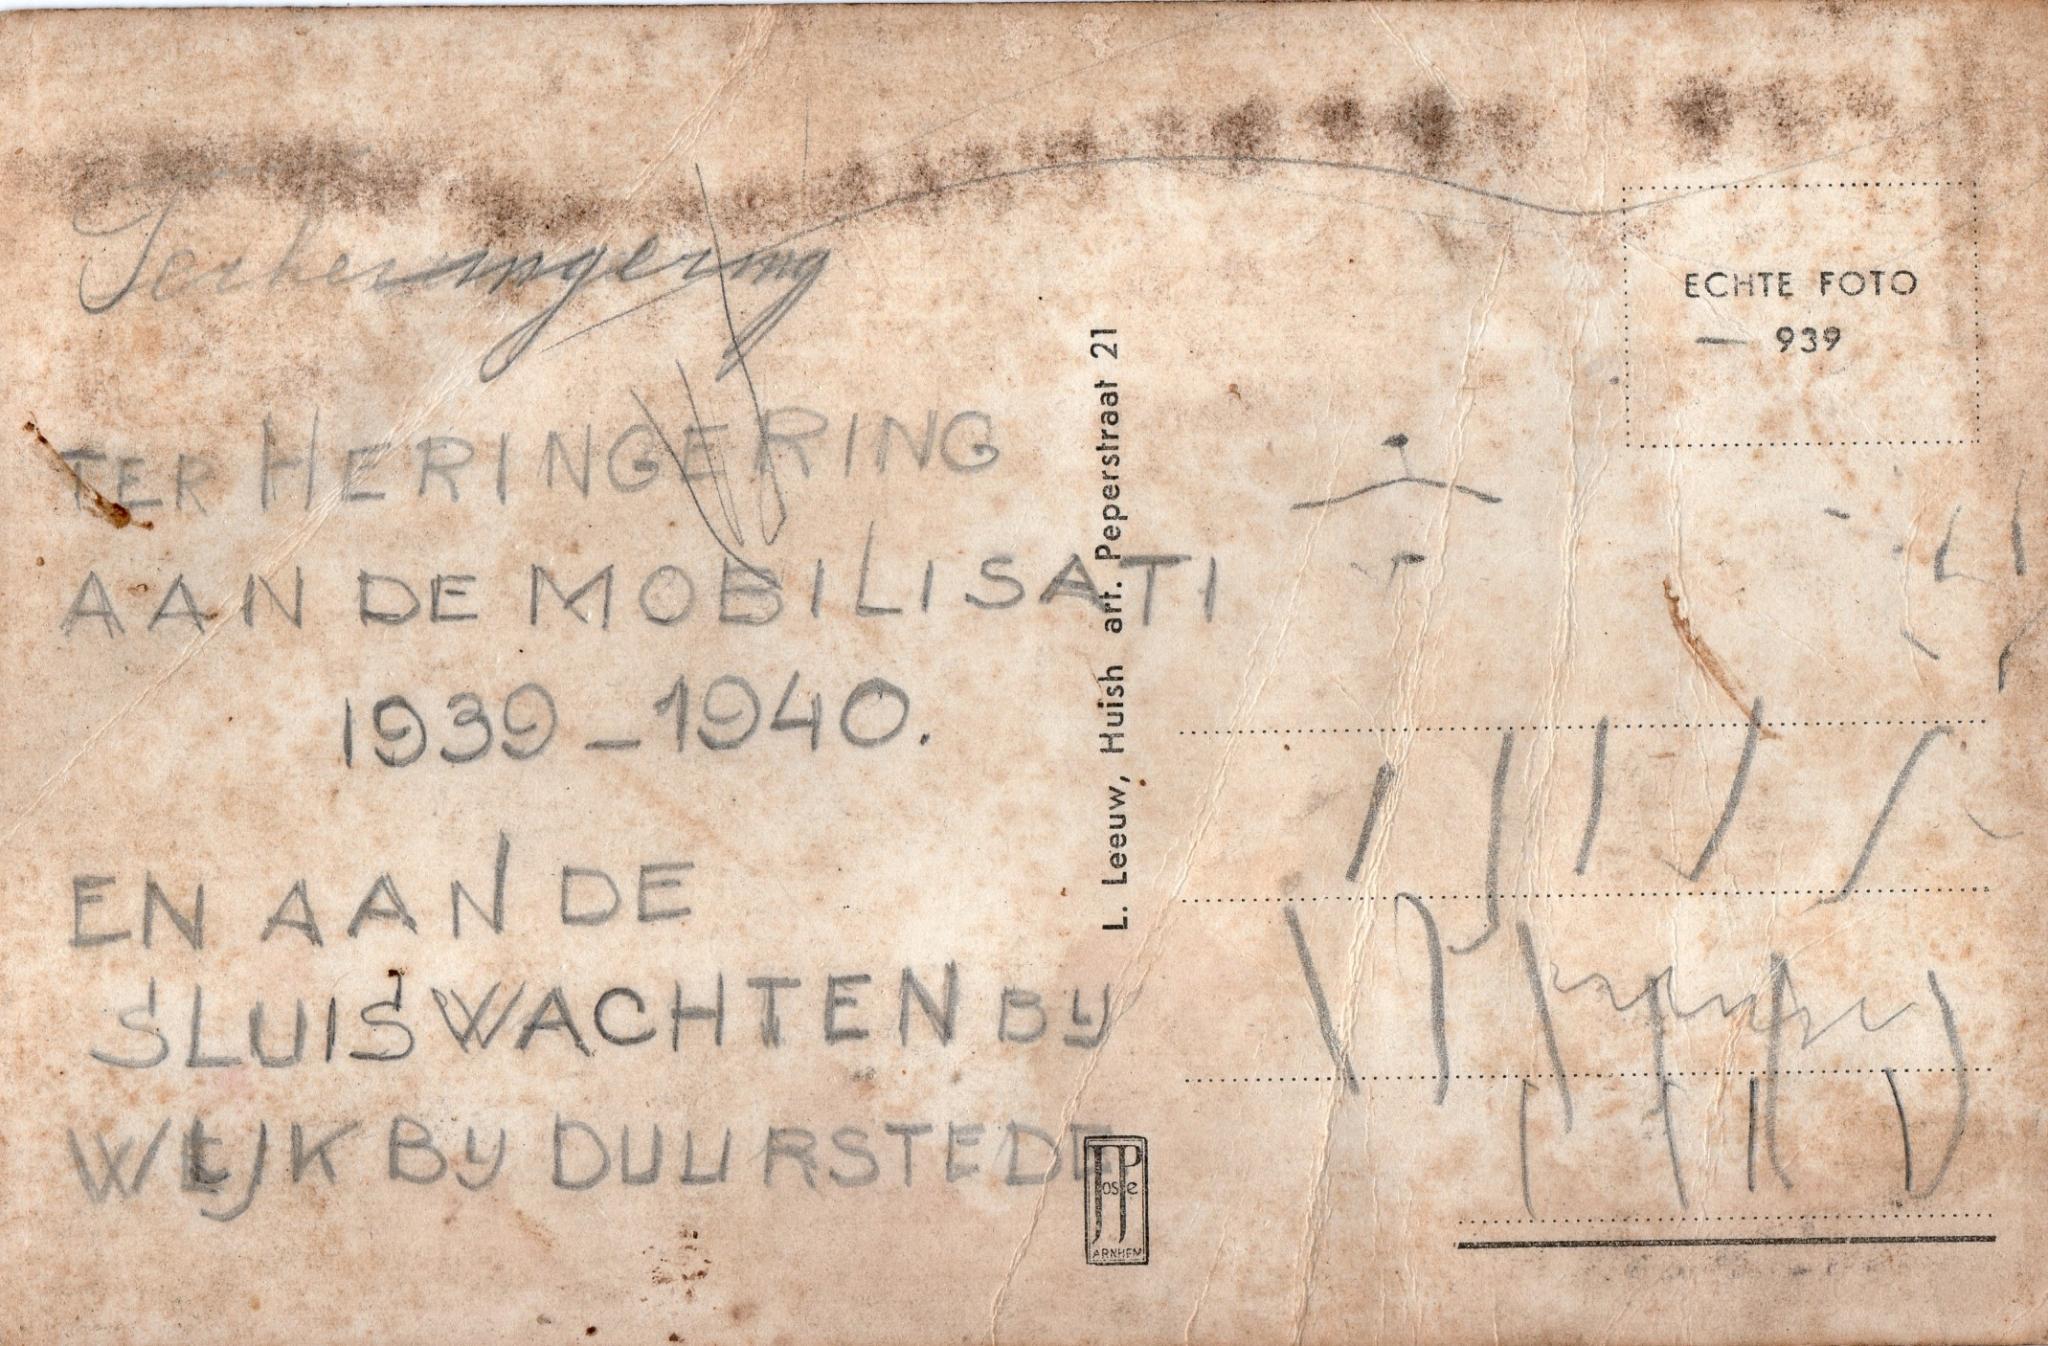 Terheringering
TER HERINGERING
AAN DE MOBILISATI
1939-1940.
EN AAN DE
SLUISWACHTEN BY
WIJK BY DUURSTEDE
L. Leeuw, Huish art. Peperstraat 21
JosPe
ARNHEM
ECHTE FOTO
— 939